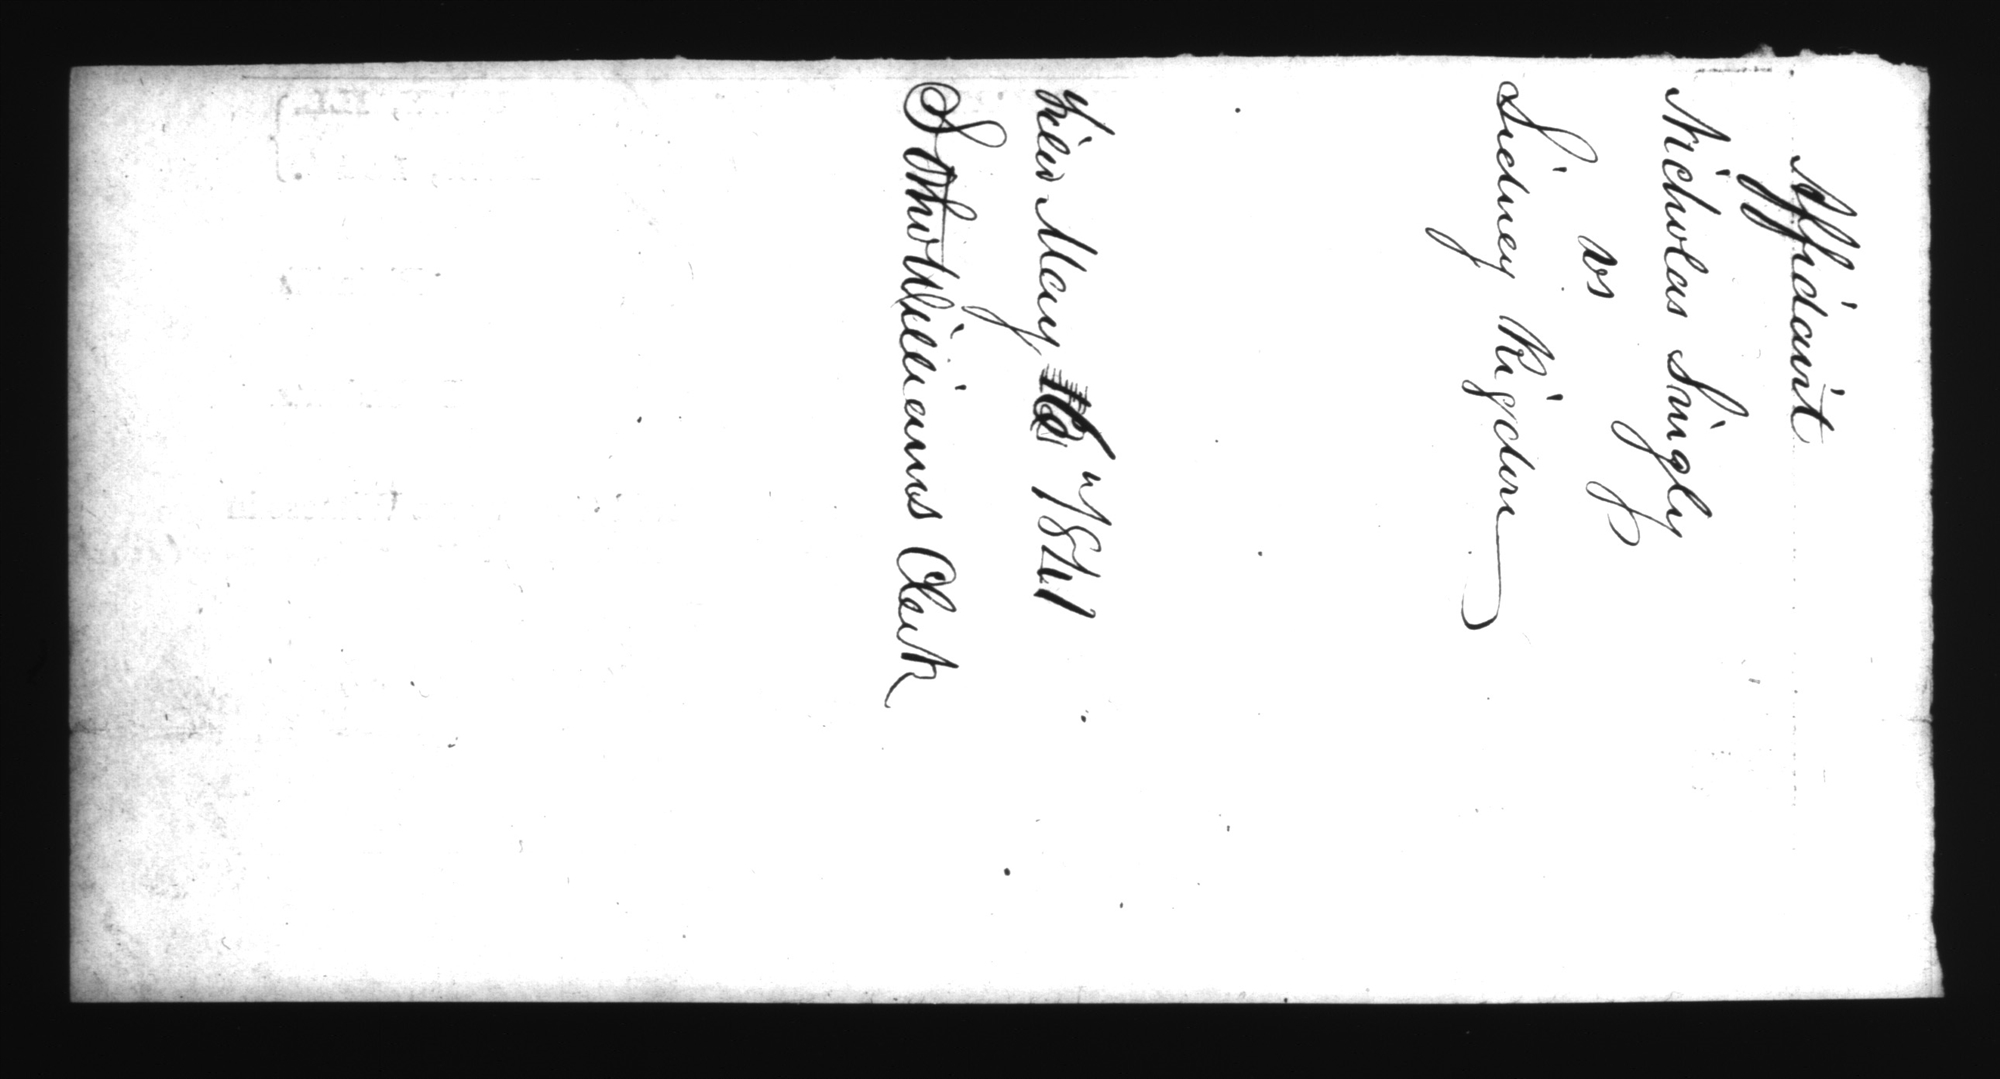 Affidavit
Nicholas Singly
vs
Sidney Rigdon
Filed May 1841
Sotho Williams Clerk